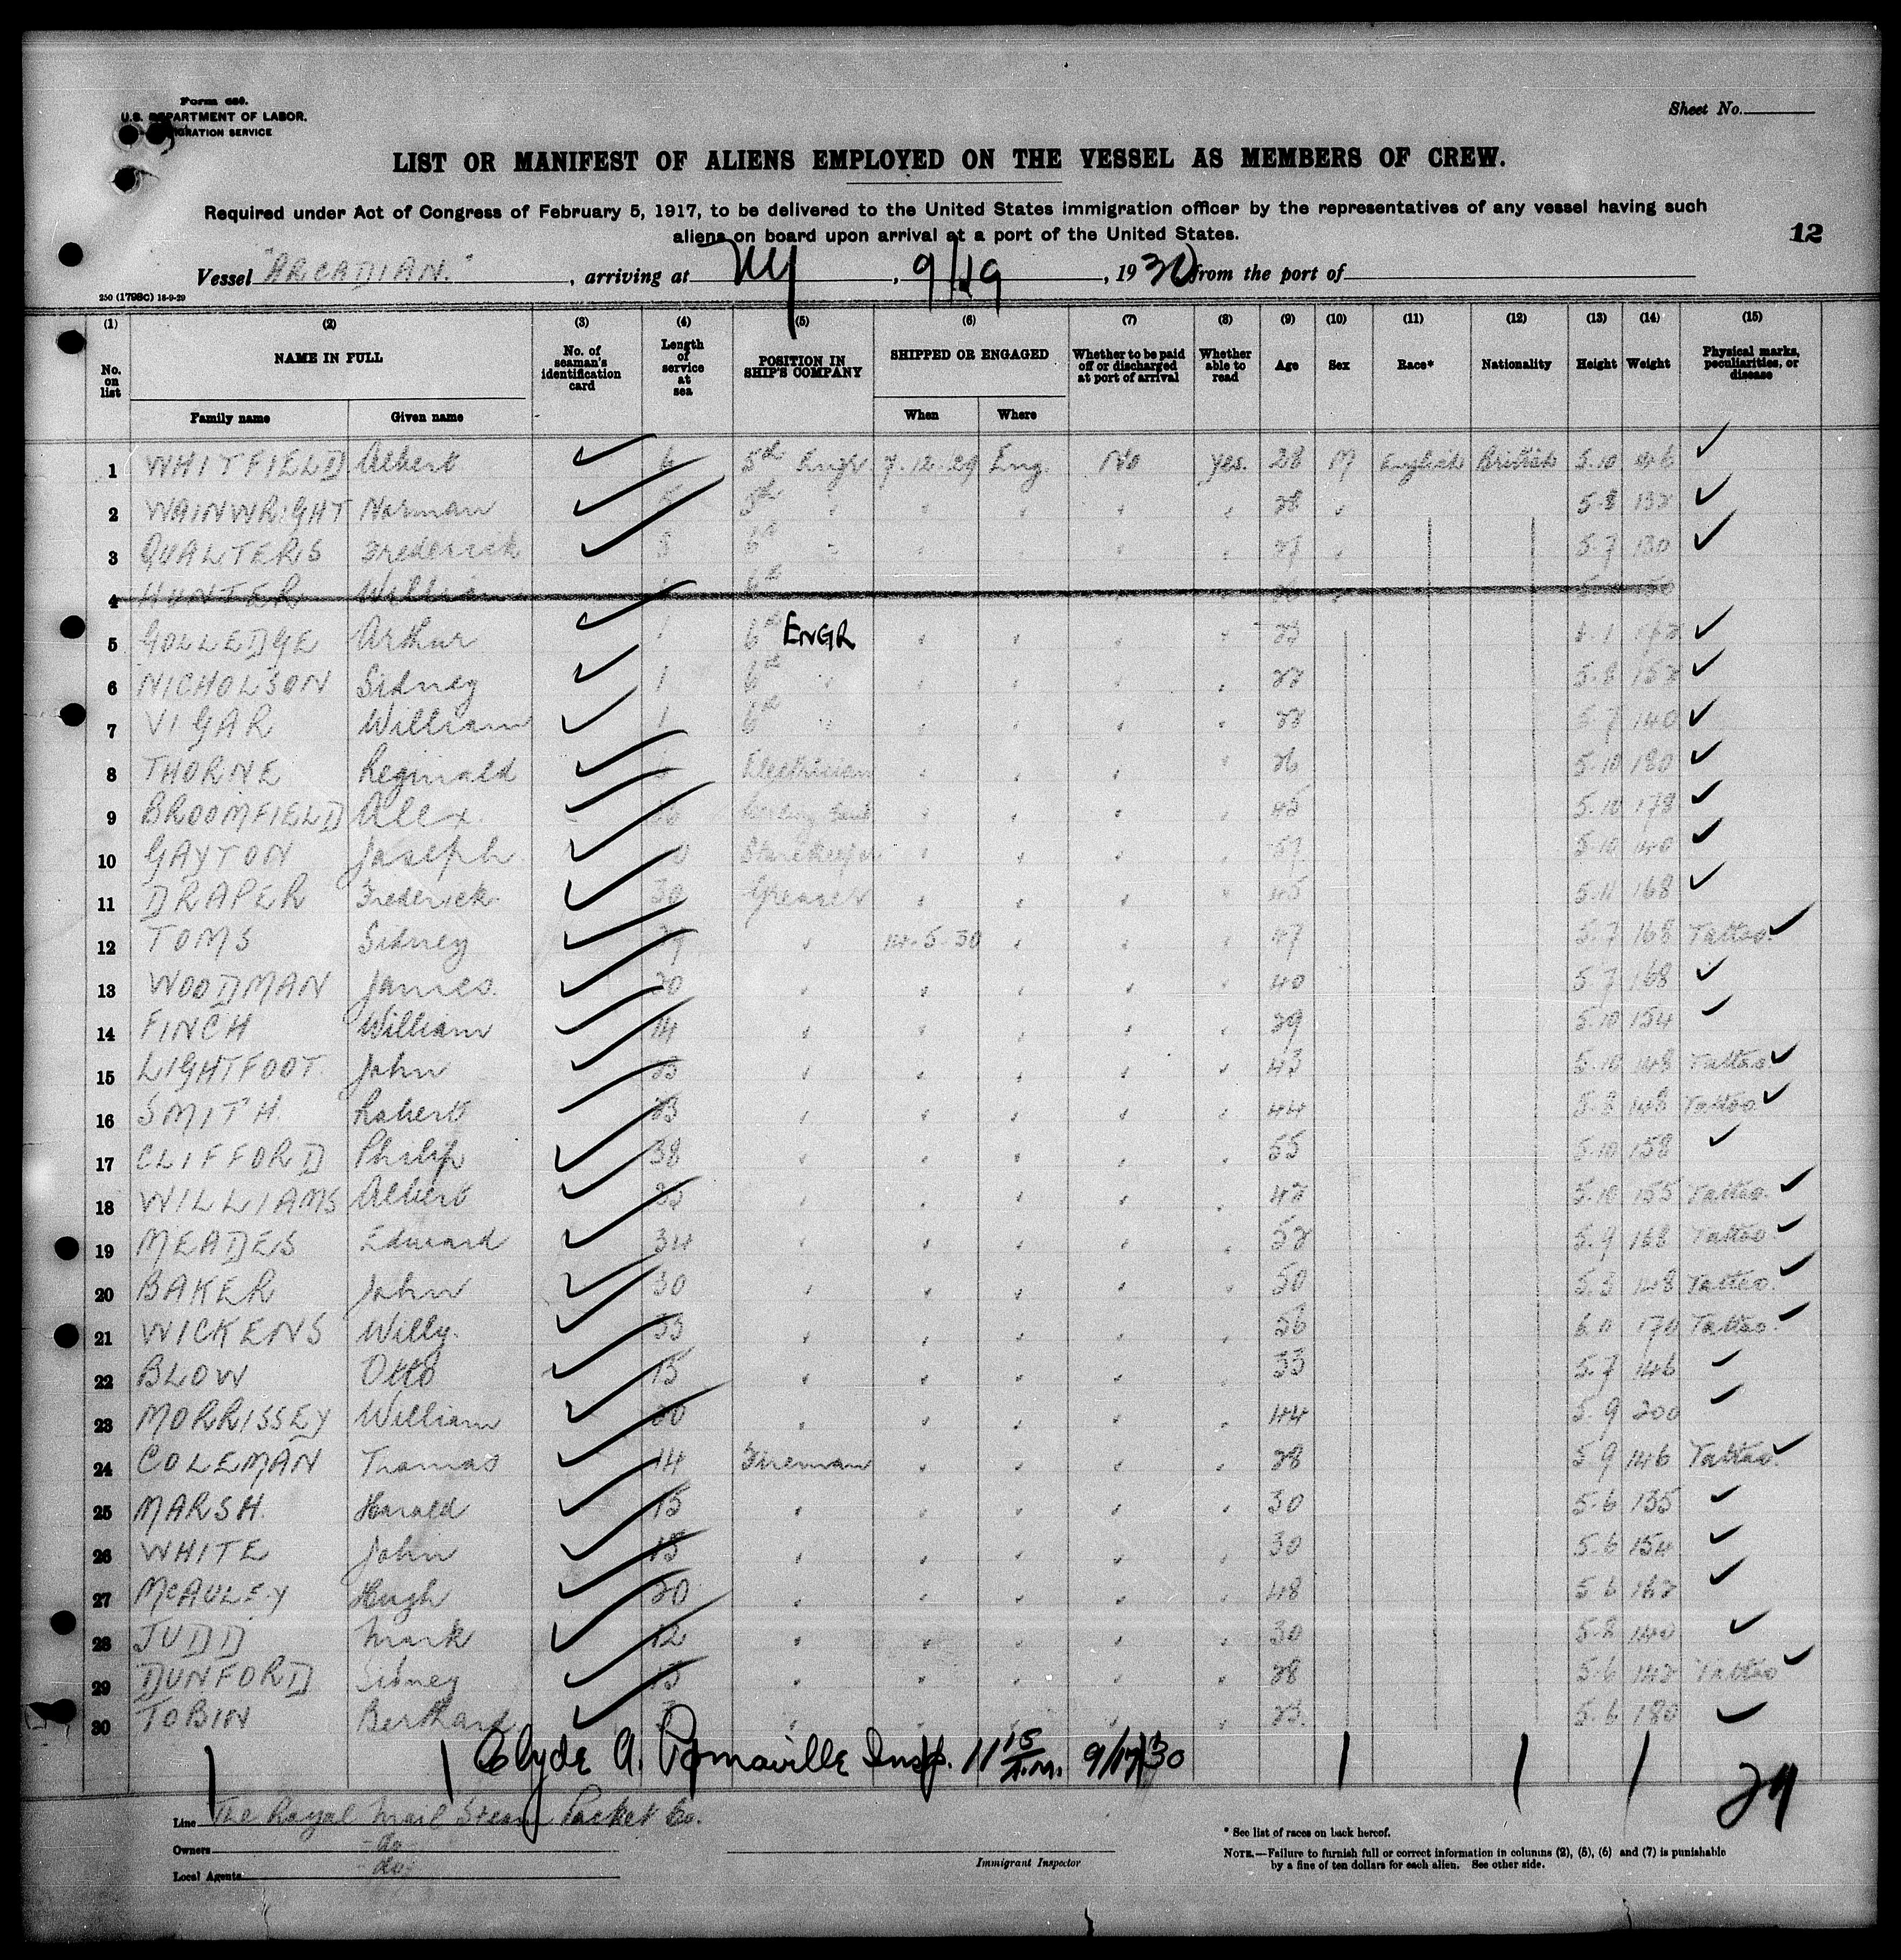 Form 689.
U.S. DEPARTMENT OF LABOR.
IMMIGRATION SERVICE
Sheet No.
LIST OR MANIFEST OF ALIENS EMPLOYED ON THE VESSEL AS MEMBERS OF CREW.
Required under Act of Congress of February 5, 1917, to be delivered to the United States immigration officer by the representatives of any vessel having such
aliens on board upon arrival at a port of the United States.
12
Vessel "ARCADIAN.", arriving at NY, 9/19, 1930 from the port of
250 (1798C) 18-9-29
(1) (2) (3) (4) (5) (6) (7) (8) (9) (10) (11) (12) (13) (14) (15)
No. on list NAME IN FULL No. of seaman's identification card Length of service at sea POSITION IN SHIP'S COMPANY SHIPPED OR ENGAGED Whether to be paid off or discharged at port of arrival Whether able to read Age Sex Race* Nationality Height Weight Physical marks, peculiarities, or disease
Family name Given name When Where
1 WHITFIELD Albert 6 5th Engr. 7.12.29 Eng. No yes. 28 M English British 5.10 146
2 WAINWRIGHT Norman 5th 28 5.8 132
3 QUALTERS Frederick 6th 27 5.7 130
4 HUNTER William 6th
5 GOLLEDGE Arthur 1 6th ENGR
6 NICHOLSON Sidney 1 6th 22 5.8 152
7 VIGAR William 1 6th 22 5.7 140
8 THORNE Reginald Electrician 26 5.10 180
9 BROOMFIELD Alex. 45 5.10 178
10 GAYTON Joseph Storekeeper 5.10 140
11 DRAPER Frederick 30 Greaser 45 5.11 168
12 TOMS Sidney 29 14.5.30 47 5.7 168 Tattoo.
13 WOODMAN James. 20 40 5.7 168
14 FINCH William 14 29 5.10 154
15 LIGHTFOOT John 23 43 5.10 148 Tattoo.
16 SMITH. Robert 23 44 5.8 148 Tattoo.
17 CLIFFORD Philip 38 55 5.10 158
18 WILLIAMS Albert 42 5.10 155 Tattoo.
19 MEADES Edward 34 52 5.9 168 Tattoo.
20 BAKER John 30 50 5.5 148 Tattoo.
21 WICKENS Willy. 33 56 6.0 170 Tattoo.
22 BLOW Otto 15 33 5.7 146
23 MORRISSEY William 20 44 5.9 200
24 COLEMAN Thomas 14 Fireman 28 5.9 146 Tattoo.
25 MARSH. Harold 15 30 5.6 135
26 WHITE John 15 30 5.6 154
27 McAULEY Hugh 20 48 5.6 162
28 JUDD Mark 12 30 5.8 140
29 DUNFORD Sidney 13 28 5.6 142 Tattoo
30 TOBIN Berthard 23. 5.6 180
Clyde A. Insp. 11 15 A.M. 9/17/30
Line The Royal Mail Steam Packet Co.
Owners -do-
Local Agents -do-
Immigrant Inspector
* See list of races on back hereof.
NOTE.—Failure to furnish full or correct information in columns (2), (5), (6) and (7) is punishable
by a fine of ten dollars for each alien. See other side.
29